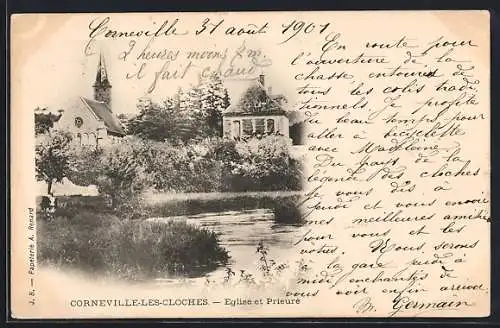 Corneville 31 août 1901
2 heures moins 2 m.
il fait chaud
En route pour
l'ouverture de la
chasse entourée de
tous les colis tradi
tionnels. Je profite
du beau temps pour
aller à bicyclette
avec Madeleine.
Du pays de la
légende des cloches
je vous dis à
jeudi et vous envoie
mes meilleures amitiés
pour vous et les
vôtres. Nous serons
à la gare jeudi à
midi enchantés de
vous voir enfin arriver
Germain
J. B. — Papeterie A. Renard
CORNEVILLE-LES-CLOCHES. — Eglise et Prieuré